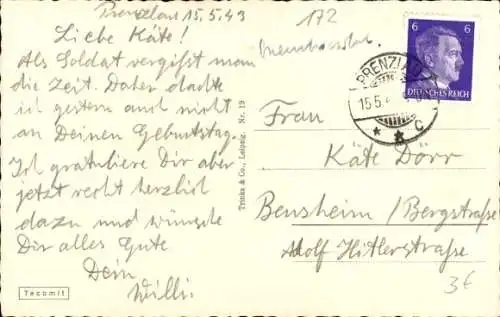 Prenzlau 15.5.43
172
Liebe Käte!
Als Soldat vergißt man
die Zeit. Daher dachte
ich gestern auch nicht
an Deinen Geburtstag.
Ich gratuliere Dir aber
jetzt recht herzlich
dazu und wünsche
Dir alles Gute
Dein
Willi.
Tecomit
Trinks & Co., Leipzig. Nr. 19
PRENZLAU
15.5.4
c
6 6
DEUTSCHES REICH
Frau
Käte Dörr
Bensheim/Bergstraße
Adolf Hitlerstraße
3€